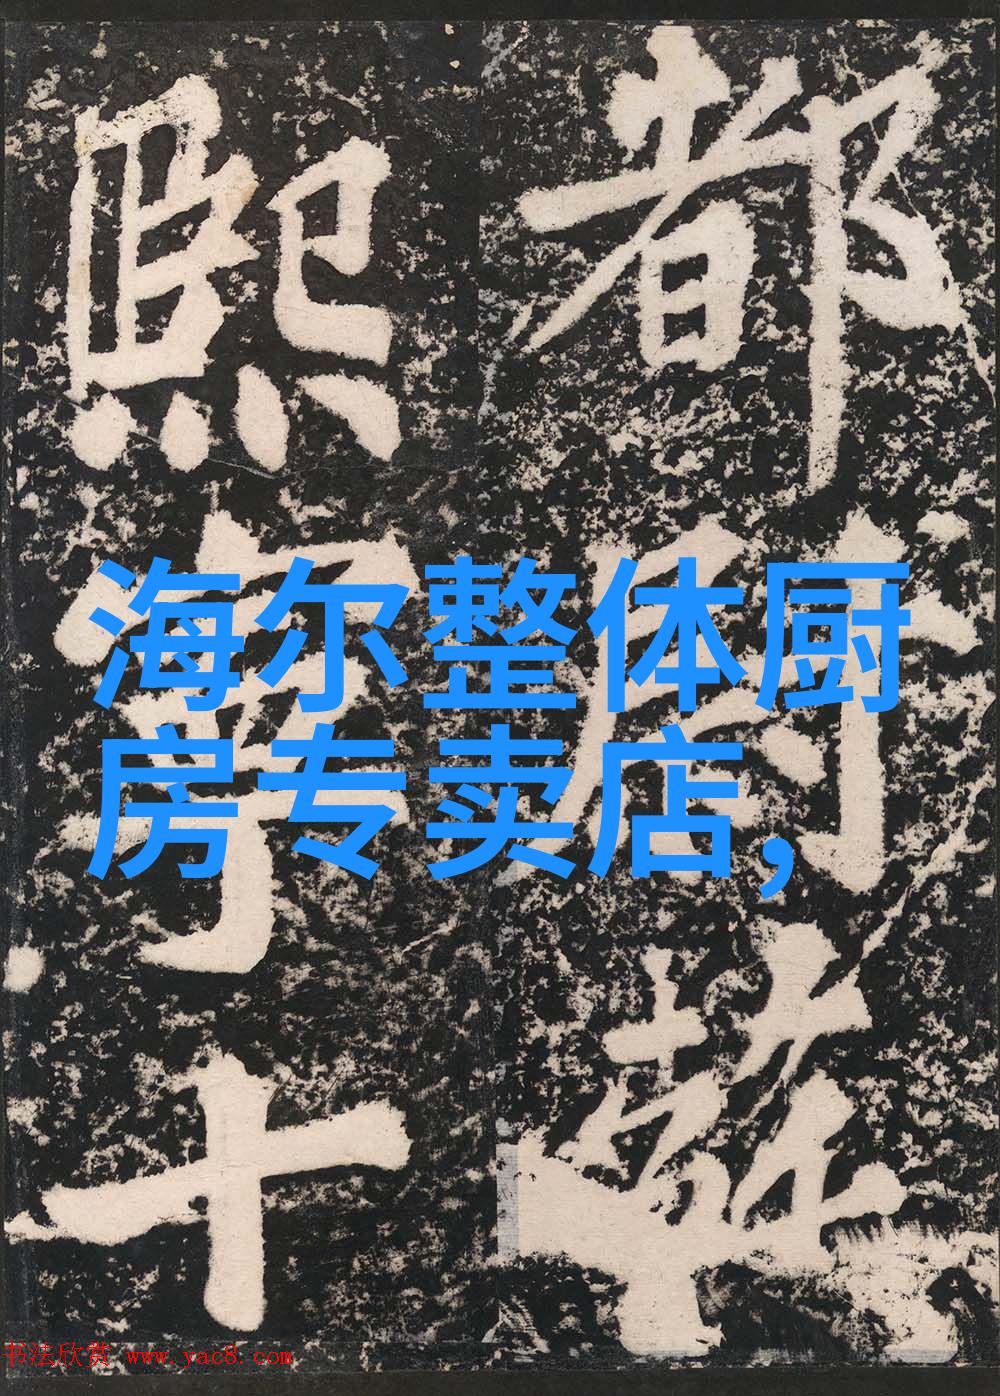 都尉蘇
熙寧十
海尔整体厨
房专卖店,
书法欣赏 www.yac8.com